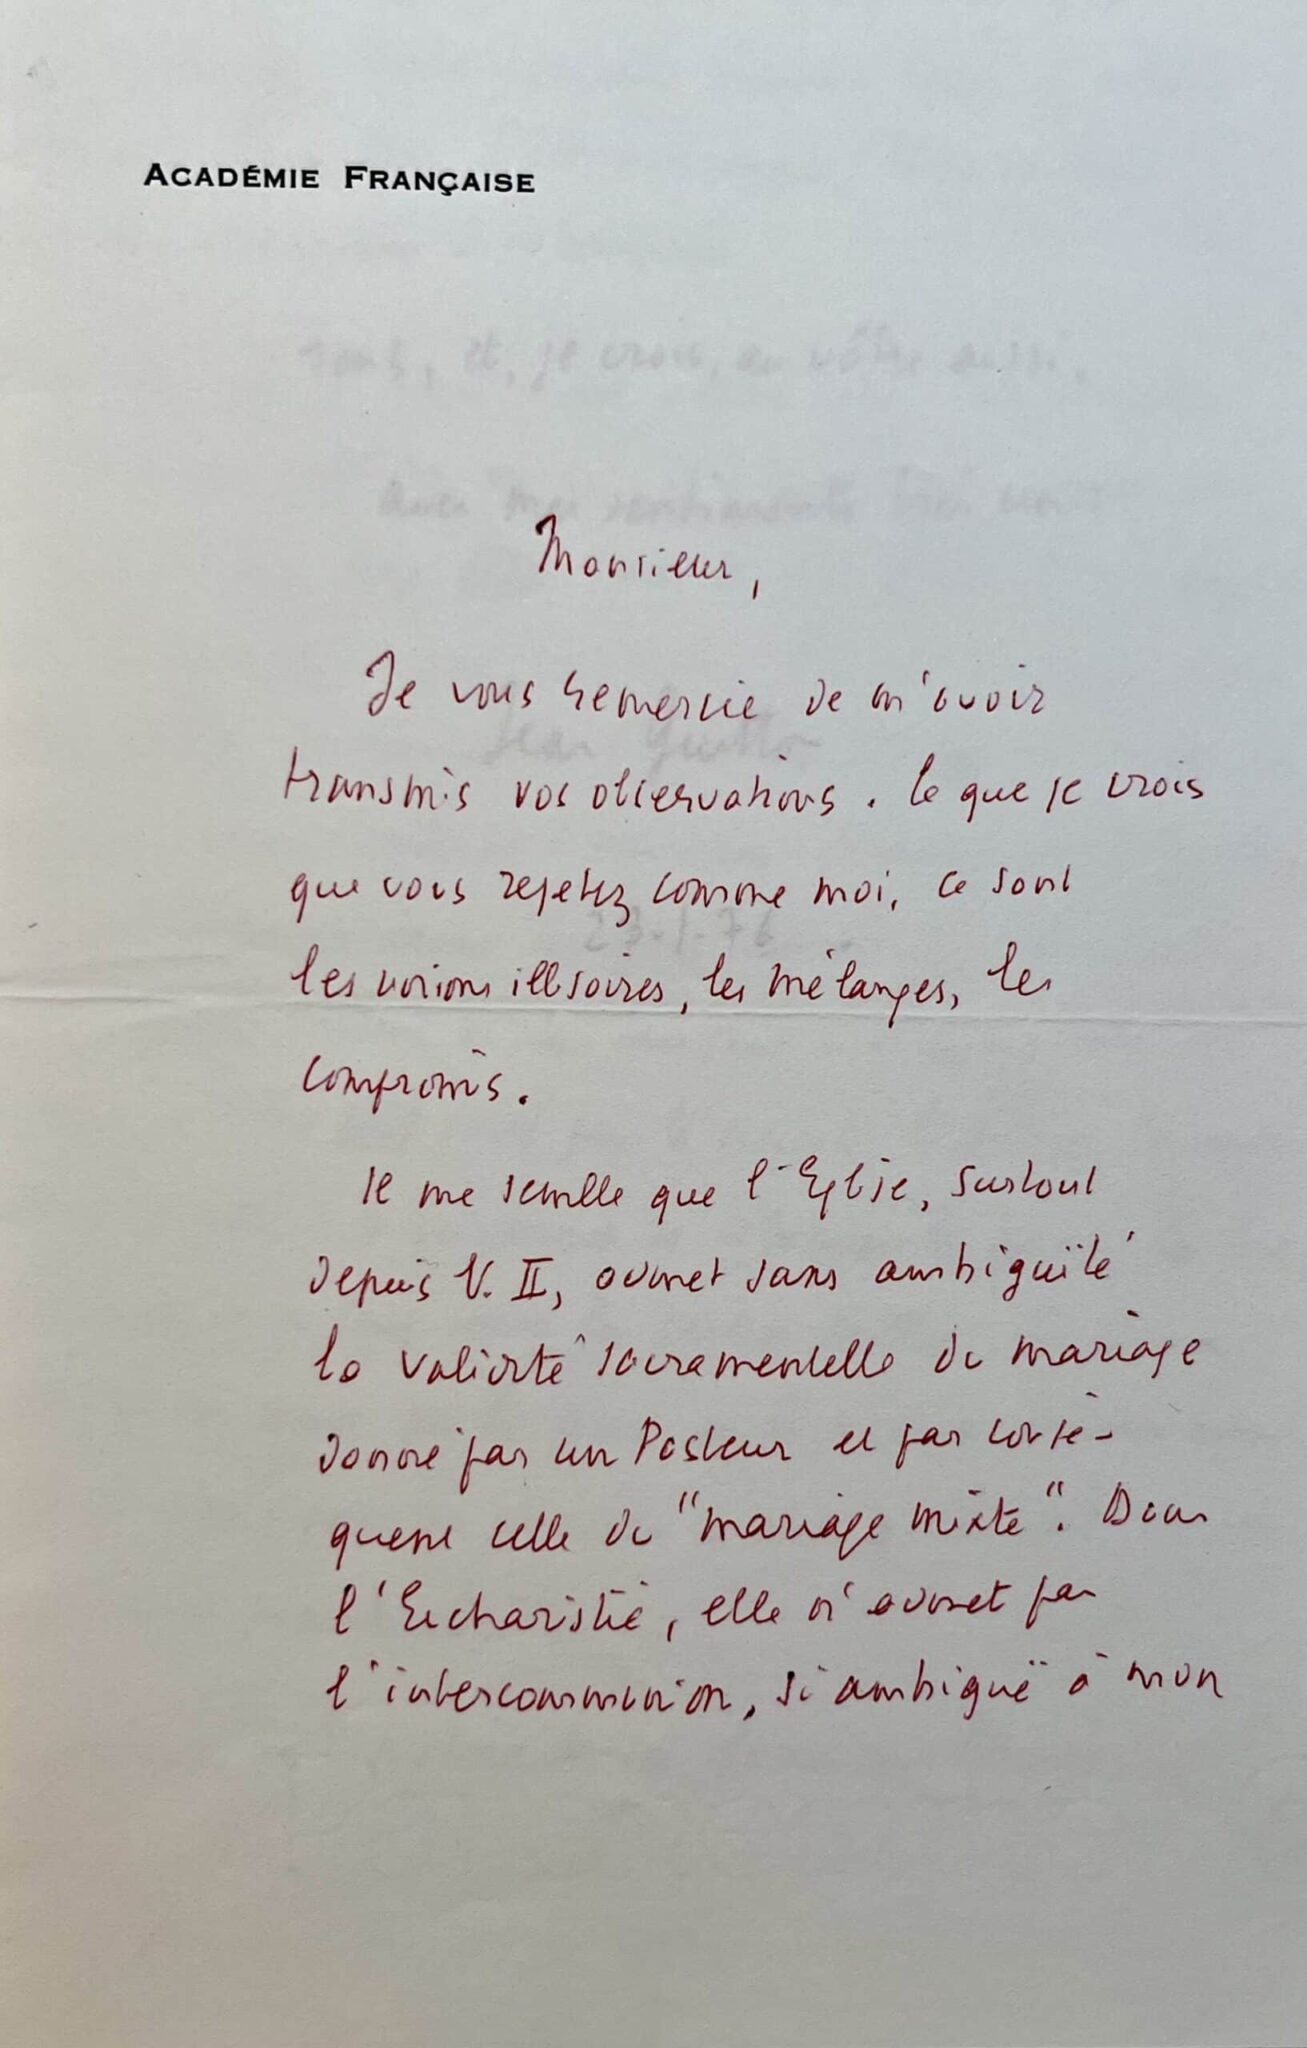 ACADÉMIE FRANÇAISE
Monsieur,
Je vous remercie de m'avoir
transmis vos observations. Ce que je crois
que vous rejetez comme moi, ce sont
les unions illusoires, les mélanges, les
compromis.
Il me semble que l'Eglise, surtout
depuis V. II, admet sans ambiguïté
la validité sacramentelle du mariage
donné par un Pasteur et par consé-
quent celle du "mariage mixte". Dans
l'Eucharistie, elle n'admet pas
l'intercommunion, si ambiguë à mon
sens, et, je crois, au vôtre aussi.
avec mes sentiments
Jean Guitton
23.1.76